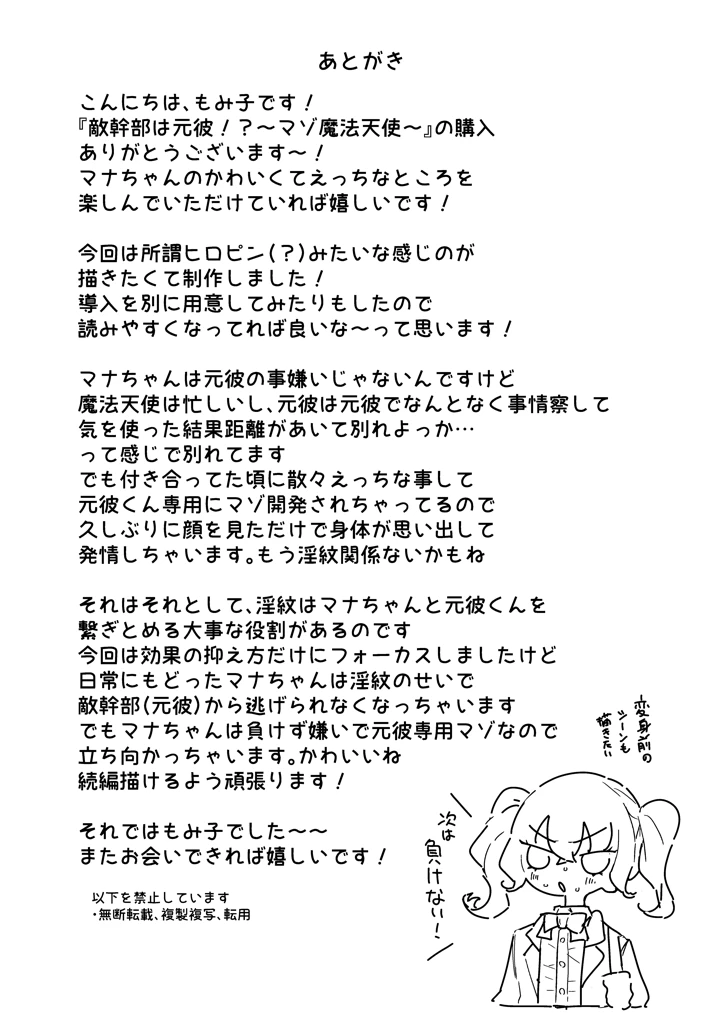 あとがき
こんにちは、もみ子です！
『敵幹部は元彼！？～マゾ魔法天使～』の購入
ありがとうございます～！
マナちゃんのかわいくてえっちなところを
楽しんでいただけていれば嬉しいです！
今回は所謂ヒロピン（？）みたいな感じのが
描きたくて制作しました！
導入を別に用意してみたりもしたので
読みやすくなってれば良いな～って思います！
マナちゃんは元彼の事嫌いじゃないんですけど
魔法天使は忙しいし、元彼は元彼でなんとなく事情察して
気を使った結果距離があいて別れよっか…
って感じで別れてます
でも付き合ってた頃に散々えっちな事して
元彼くん専用にマゾ開発されちゃってるので
久しぶりに顔を見ただけで身体が思い出して
発情しちゃいます。もう淫紋関係ないかもね
それはそれとして、淫紋はマナちゃんと元彼くんを
繋ぎとめる大事な役割があるのです
今回は効果の抑え方だけにフォーカスしましたけど
日常にもどったマナちゃんは淫紋のせいで
敵幹部（元彼）から逃げられなくなっちゃいます
でもマナちゃんは負けず嫌いで元彼専用マゾなので
立ち向かっちゃいます。かわいいね
続編描けるよう頑張ります！
それではもみ子でした～～
またお会いできれば嬉しいです！
以下を禁止しています
・無断転載、複製複写、転用
変身前の
シーンも
描きたい
次は
負けない！